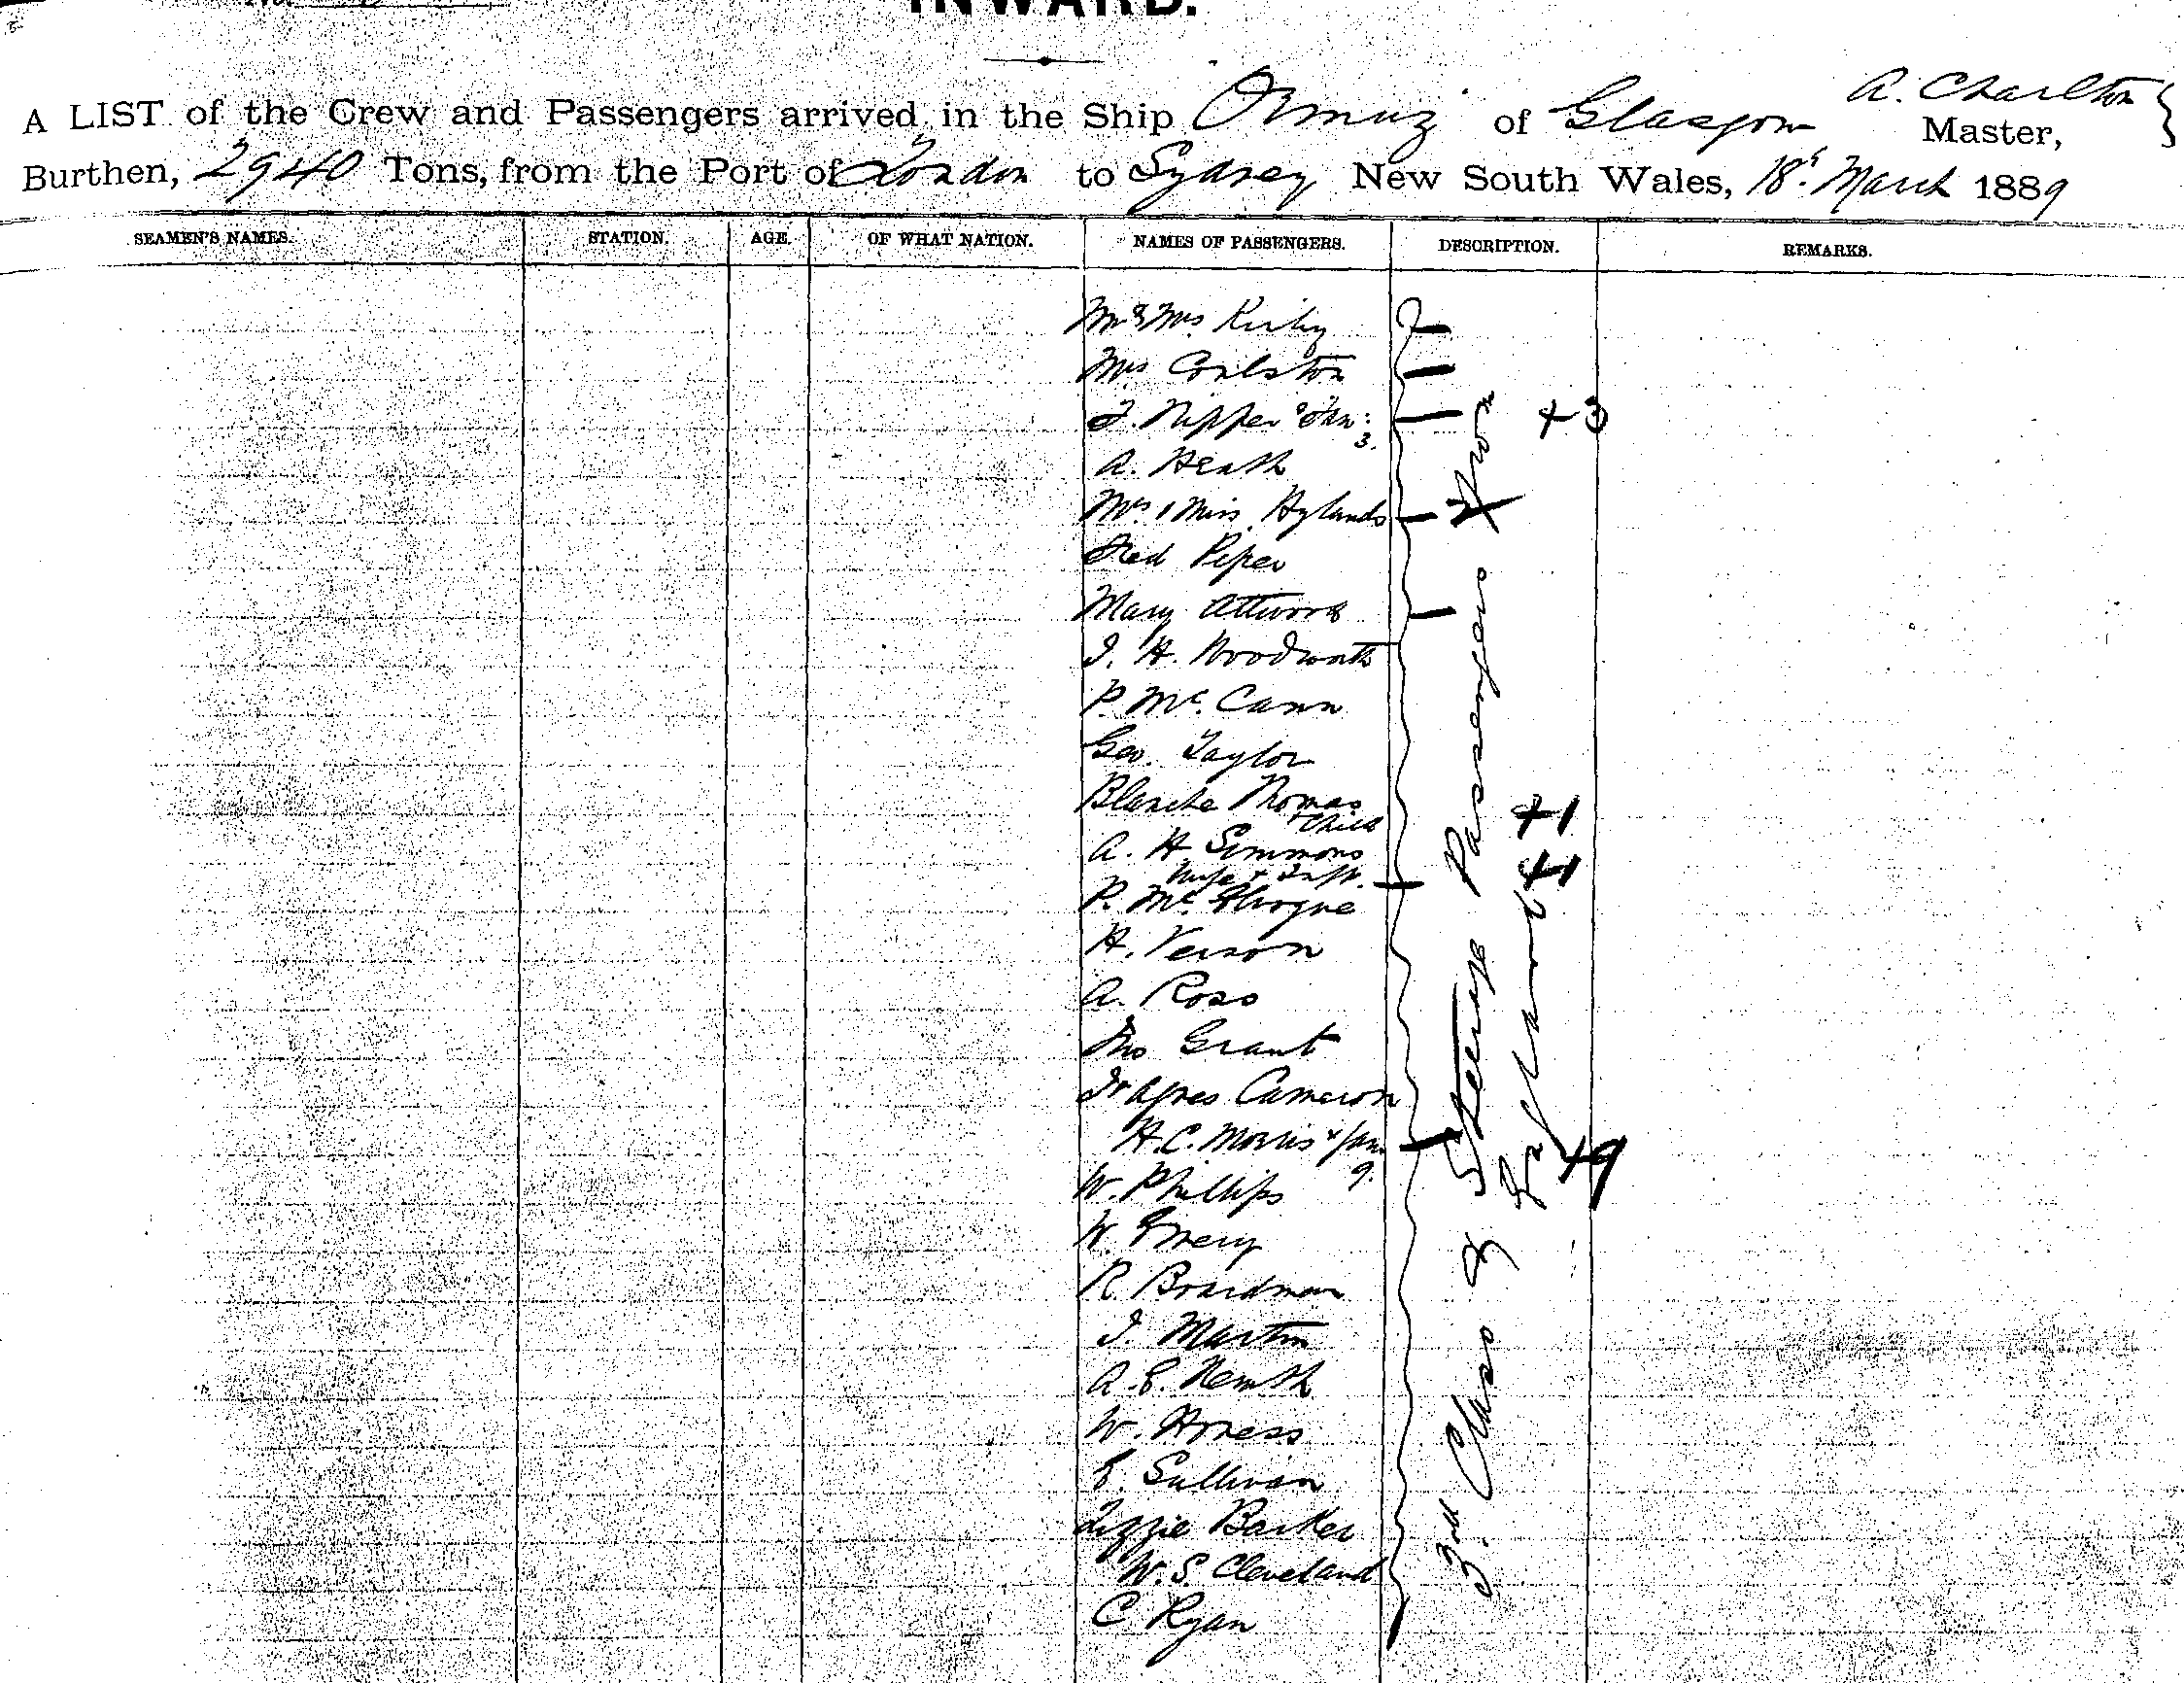 INWARD.
A LIST of the Crew and Passengers arrived in the Ship Ormuz of Glasgow A. Charlton Master,
Burthen, 2940 Tons, from the Port of London to Sydney New South Wales, 18th March 1889
SEAMEN'S NAMES. STATION. AGE. OF WHAT NATION. NAMES OF PASSENGERS. DESCRIPTION. REMARKS.
Mr & Mrs Kirby
Mrs Coulston
+3
3.
A. Heath
Mrs & Miss Hylands
Fred Piper
Mary Attwood
J. H. Woodworth
P. McCann
Geo. Taylor
Blanche Thomas
+ Child
+1
A. H Simmons
Wife + Inft.
+1
P. Mc
H. Verson
A. Ross
Thos Grant
Cameron
H.C. Morris + fam
9.
+9
W. Phillips
W. Emery
R. Boardman
J. Martin
A. E.
W. Honess
E. Sullivan
Lizzie Barker
W. S. Cleveland
C Ryan
3rd Class & Steerage Passengers from